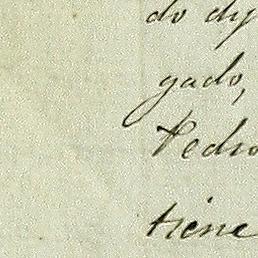 do dy
gado,
Pedro
tiene